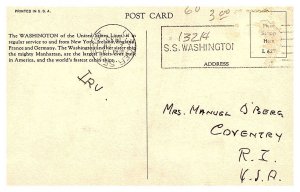 PRINTED IN U.S.A.
POST CARD
60
3.00
13214
S.S. WASHINGTON
The WASHINGTON of the United States Lines is in
regular service to and from New York, Ireland, England,
France and Germany. The Washington and her sister ship
the mighty Manhattan, are the largest liners ever built
in America, and the world's fastest cabin ships.
ADDRESS
IRV
MRS. MANUEL O'BERG
COVENTRY
R.I.
U.S.A.